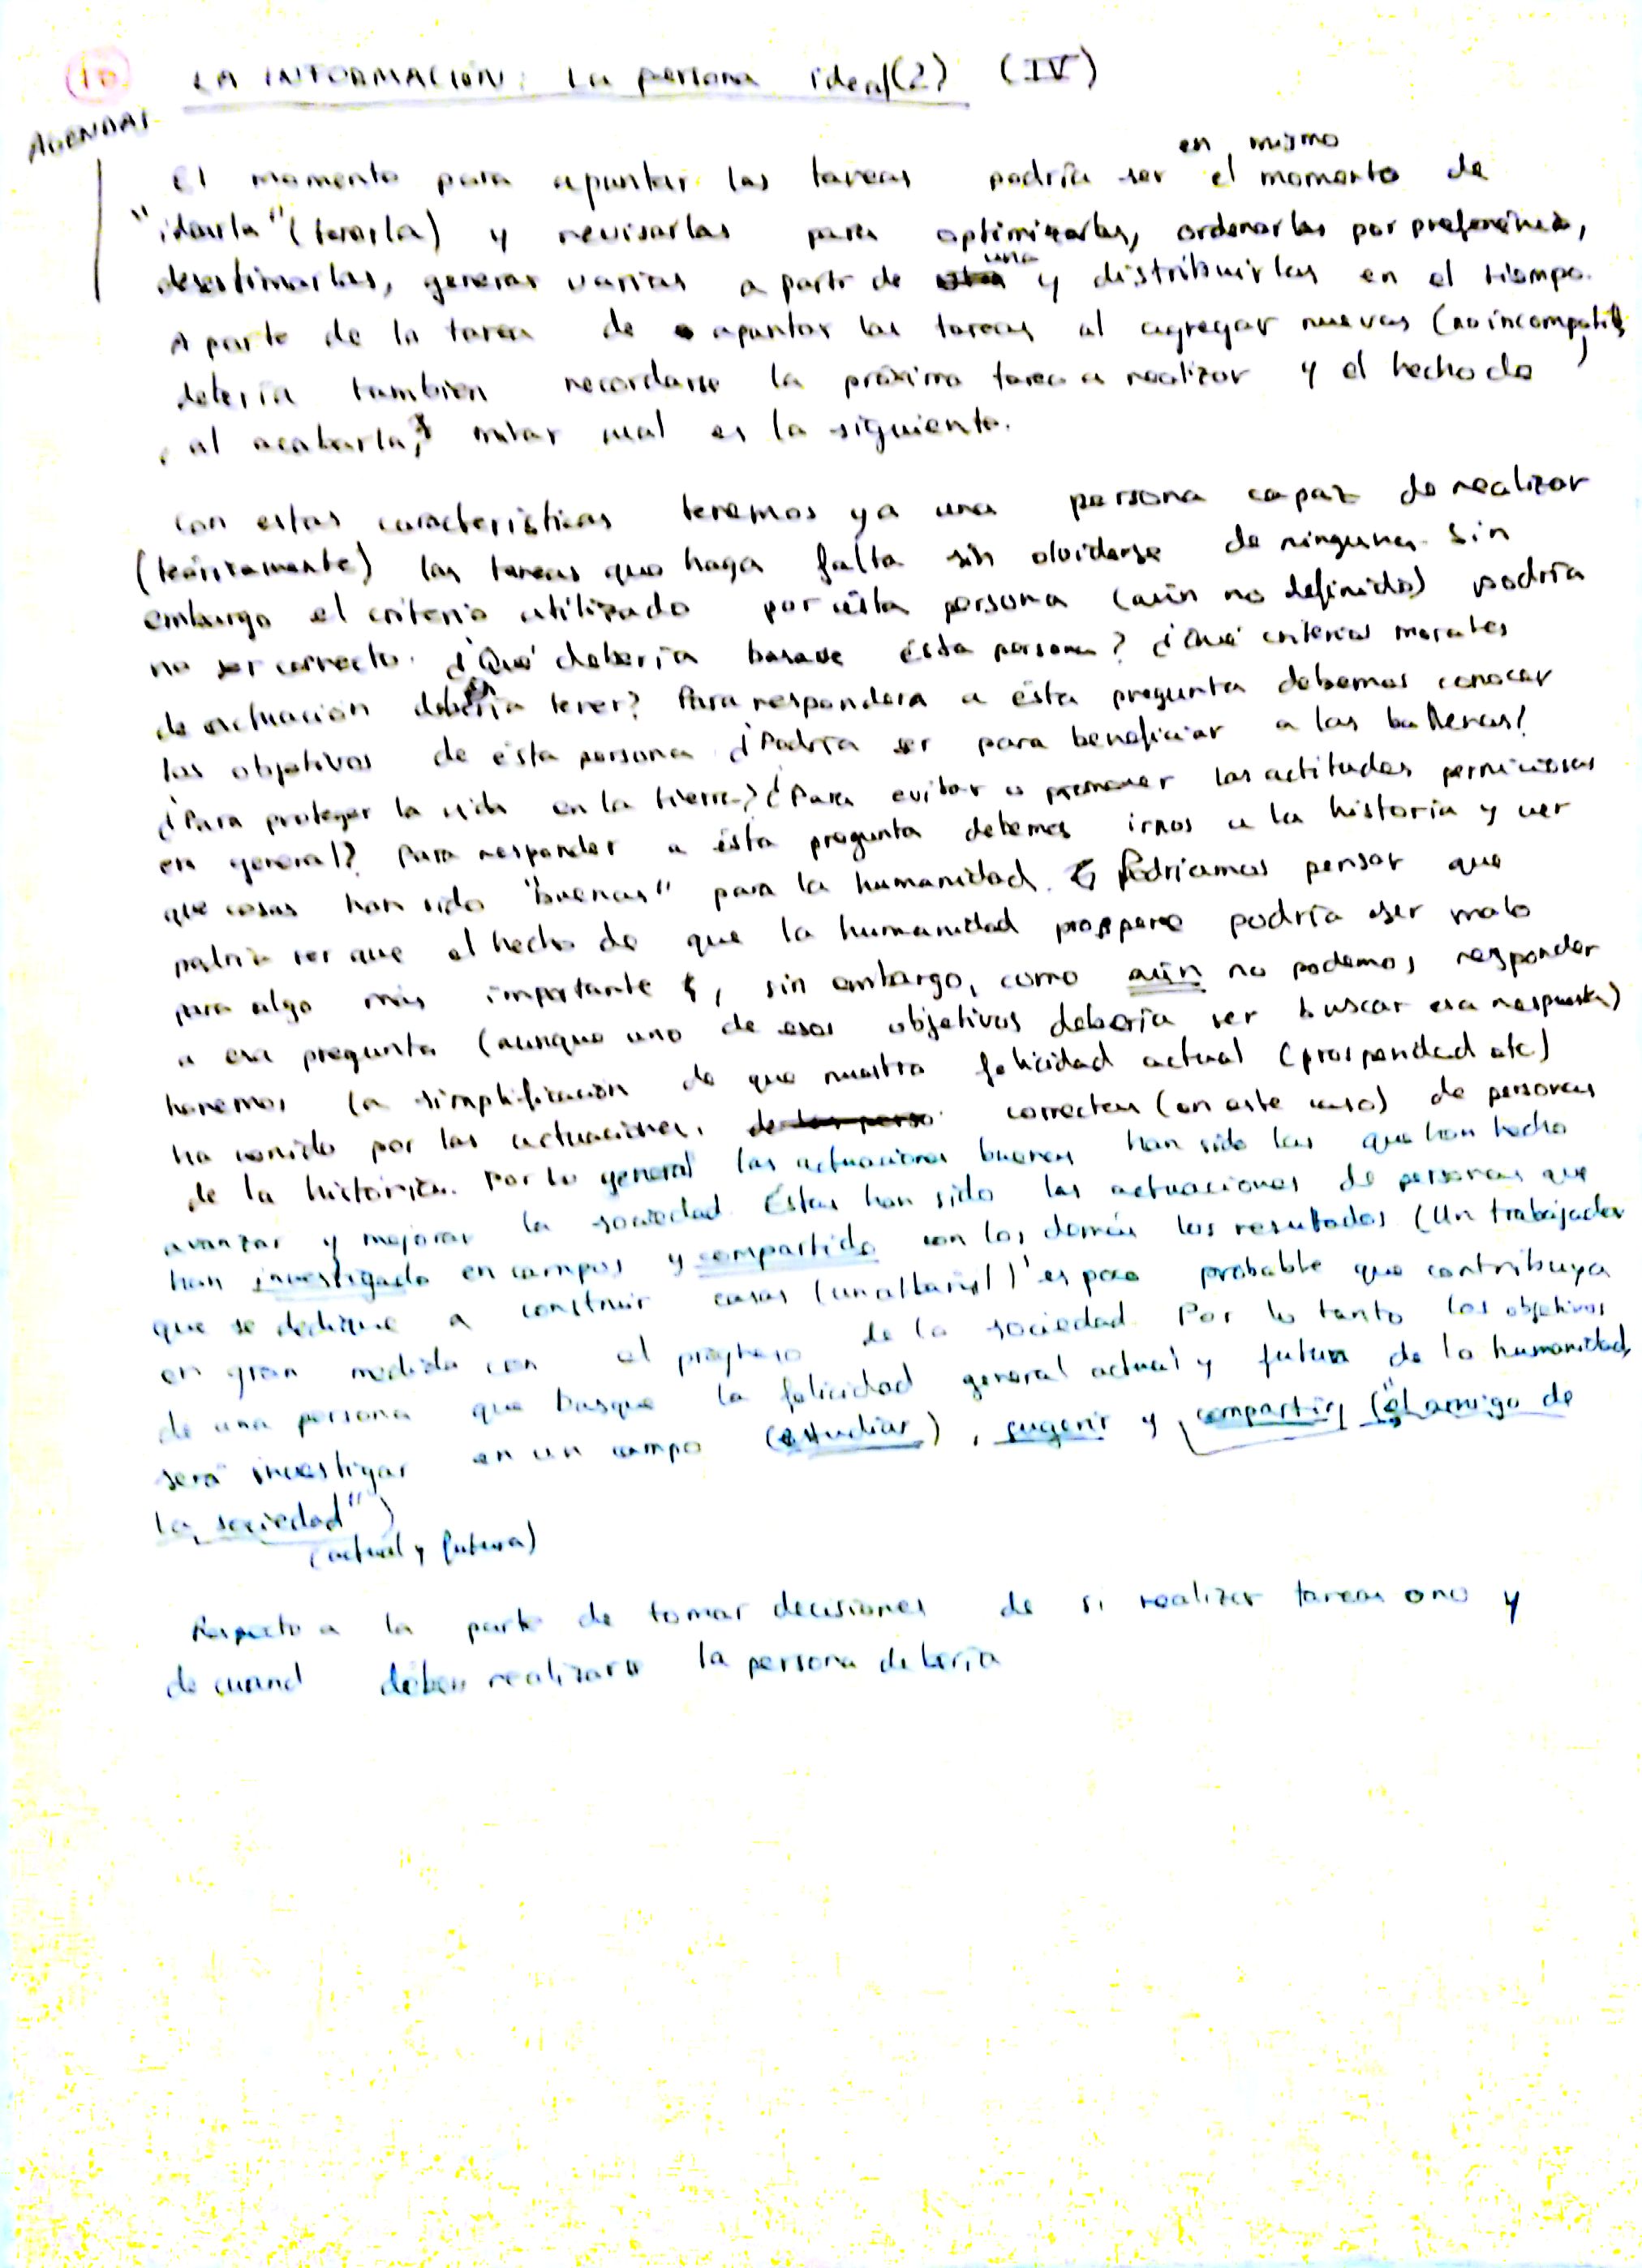 10 LA INFORMACIÓN: La persona ideal(2) (IV)
AGENDAS
en mismo
El momento para apuntar las tareas podría ser el momento de
"idearla" (tenerla) y revisarlas para optimizarlas, ordenarlas por preferéncia,
una
desestimarlas, generar varias a partir de y distribuirlas en el tiempo.
A parte de la tarea de apuntar las tareas al agregar nuevas (no incompatibles)
debería tambien recordarse la próxima tarea a realizar y el hecho de
, al acabarla, mirar cual es la siguiente.
Con estas características tenemos ya una persona capaz de realizar
(teóricamente) las tareas que haga falta sin olvidarse de ninguna. Sin
embargo el criterio utilizado por ésta persona (aún no definido) podría
no ser correcto. ¿Qué debería basarse ésta persona? ¿Qué criterios morales
de actuación debería tener? Para responder a ésta pregunta debemos conocer
los objetivos de ésta persona ¿Podría ser para beneficiar a las ballenas?
¿Para proteger la vida en la tierra? ¿Para evitar o promover las actitudes perniciosas
en general? Para responder a ésta pregunta debemos irnos a la historia y ver
que cosas han sido "buenas" para la humanidad. Podríamos pensar que
podría ser que el hecho de que la humanidad prospere podría ser malo
para algo más importante, sin embargo, como aún no podemos responder
a esa pregunta (aunque uno de esos objetivos debería ser buscar esa respuesta)
haremos la simplificación de que nuestra felicidad actual (prosperidad etc)
ha venido por las actuaciones, de las perso correctas (en este caso) de personas
de la historia. Por lo general las actuaciones buenas han sido las que han hecho
avanzar y mejorar la sociedad. Éstas han sido las actuaciones de personas que
han investigado en campos y compartido con los demás los resultados (Un trabajador
que se dedique a construir casas (un albañil) es poco probable que contribuya
en gran medida con el progreso de la sociedad. Por lo tanto los objetivos
de una persona que busque la felicidad general actual y futura de la humanidad,
será investigar en un campo (estudiar), sugerir y compartir, ("el amigo de
la sociedad")
(actual y futura)
Respecto a la parte de tomar decisiones de si realizar tareas o no y
de cuand deben realizarse la persona debería